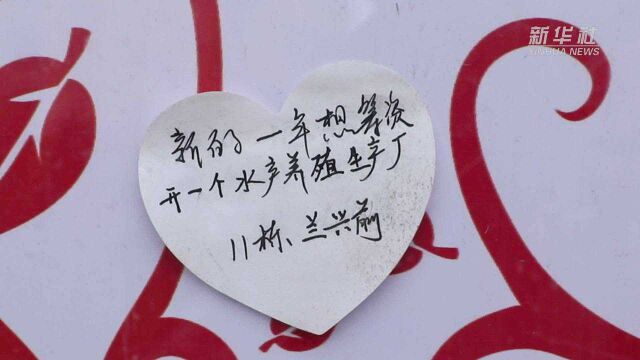 新华社
XINHUA NEWS
新的一年想筹资
开一个水产养殖生产厂
11栋、兰兴前